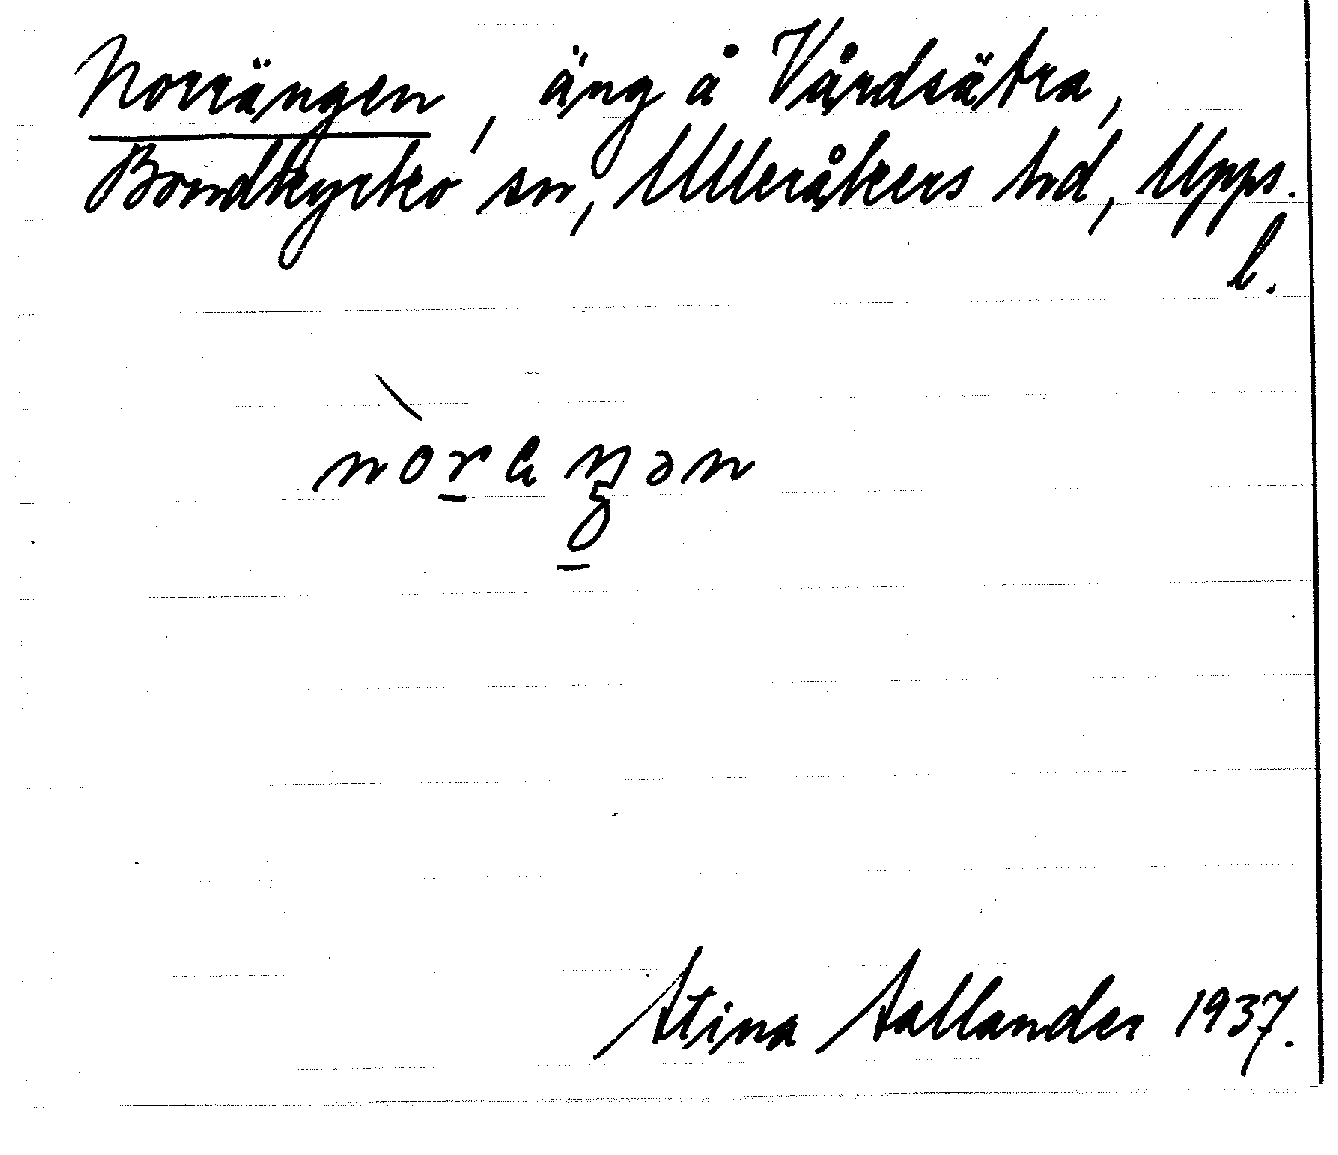 Norrängen, äng å Vårdsätra,
Bondkyrko sn, Ulleråkers hd, Upps.
l.
Stina Sallander 1937.